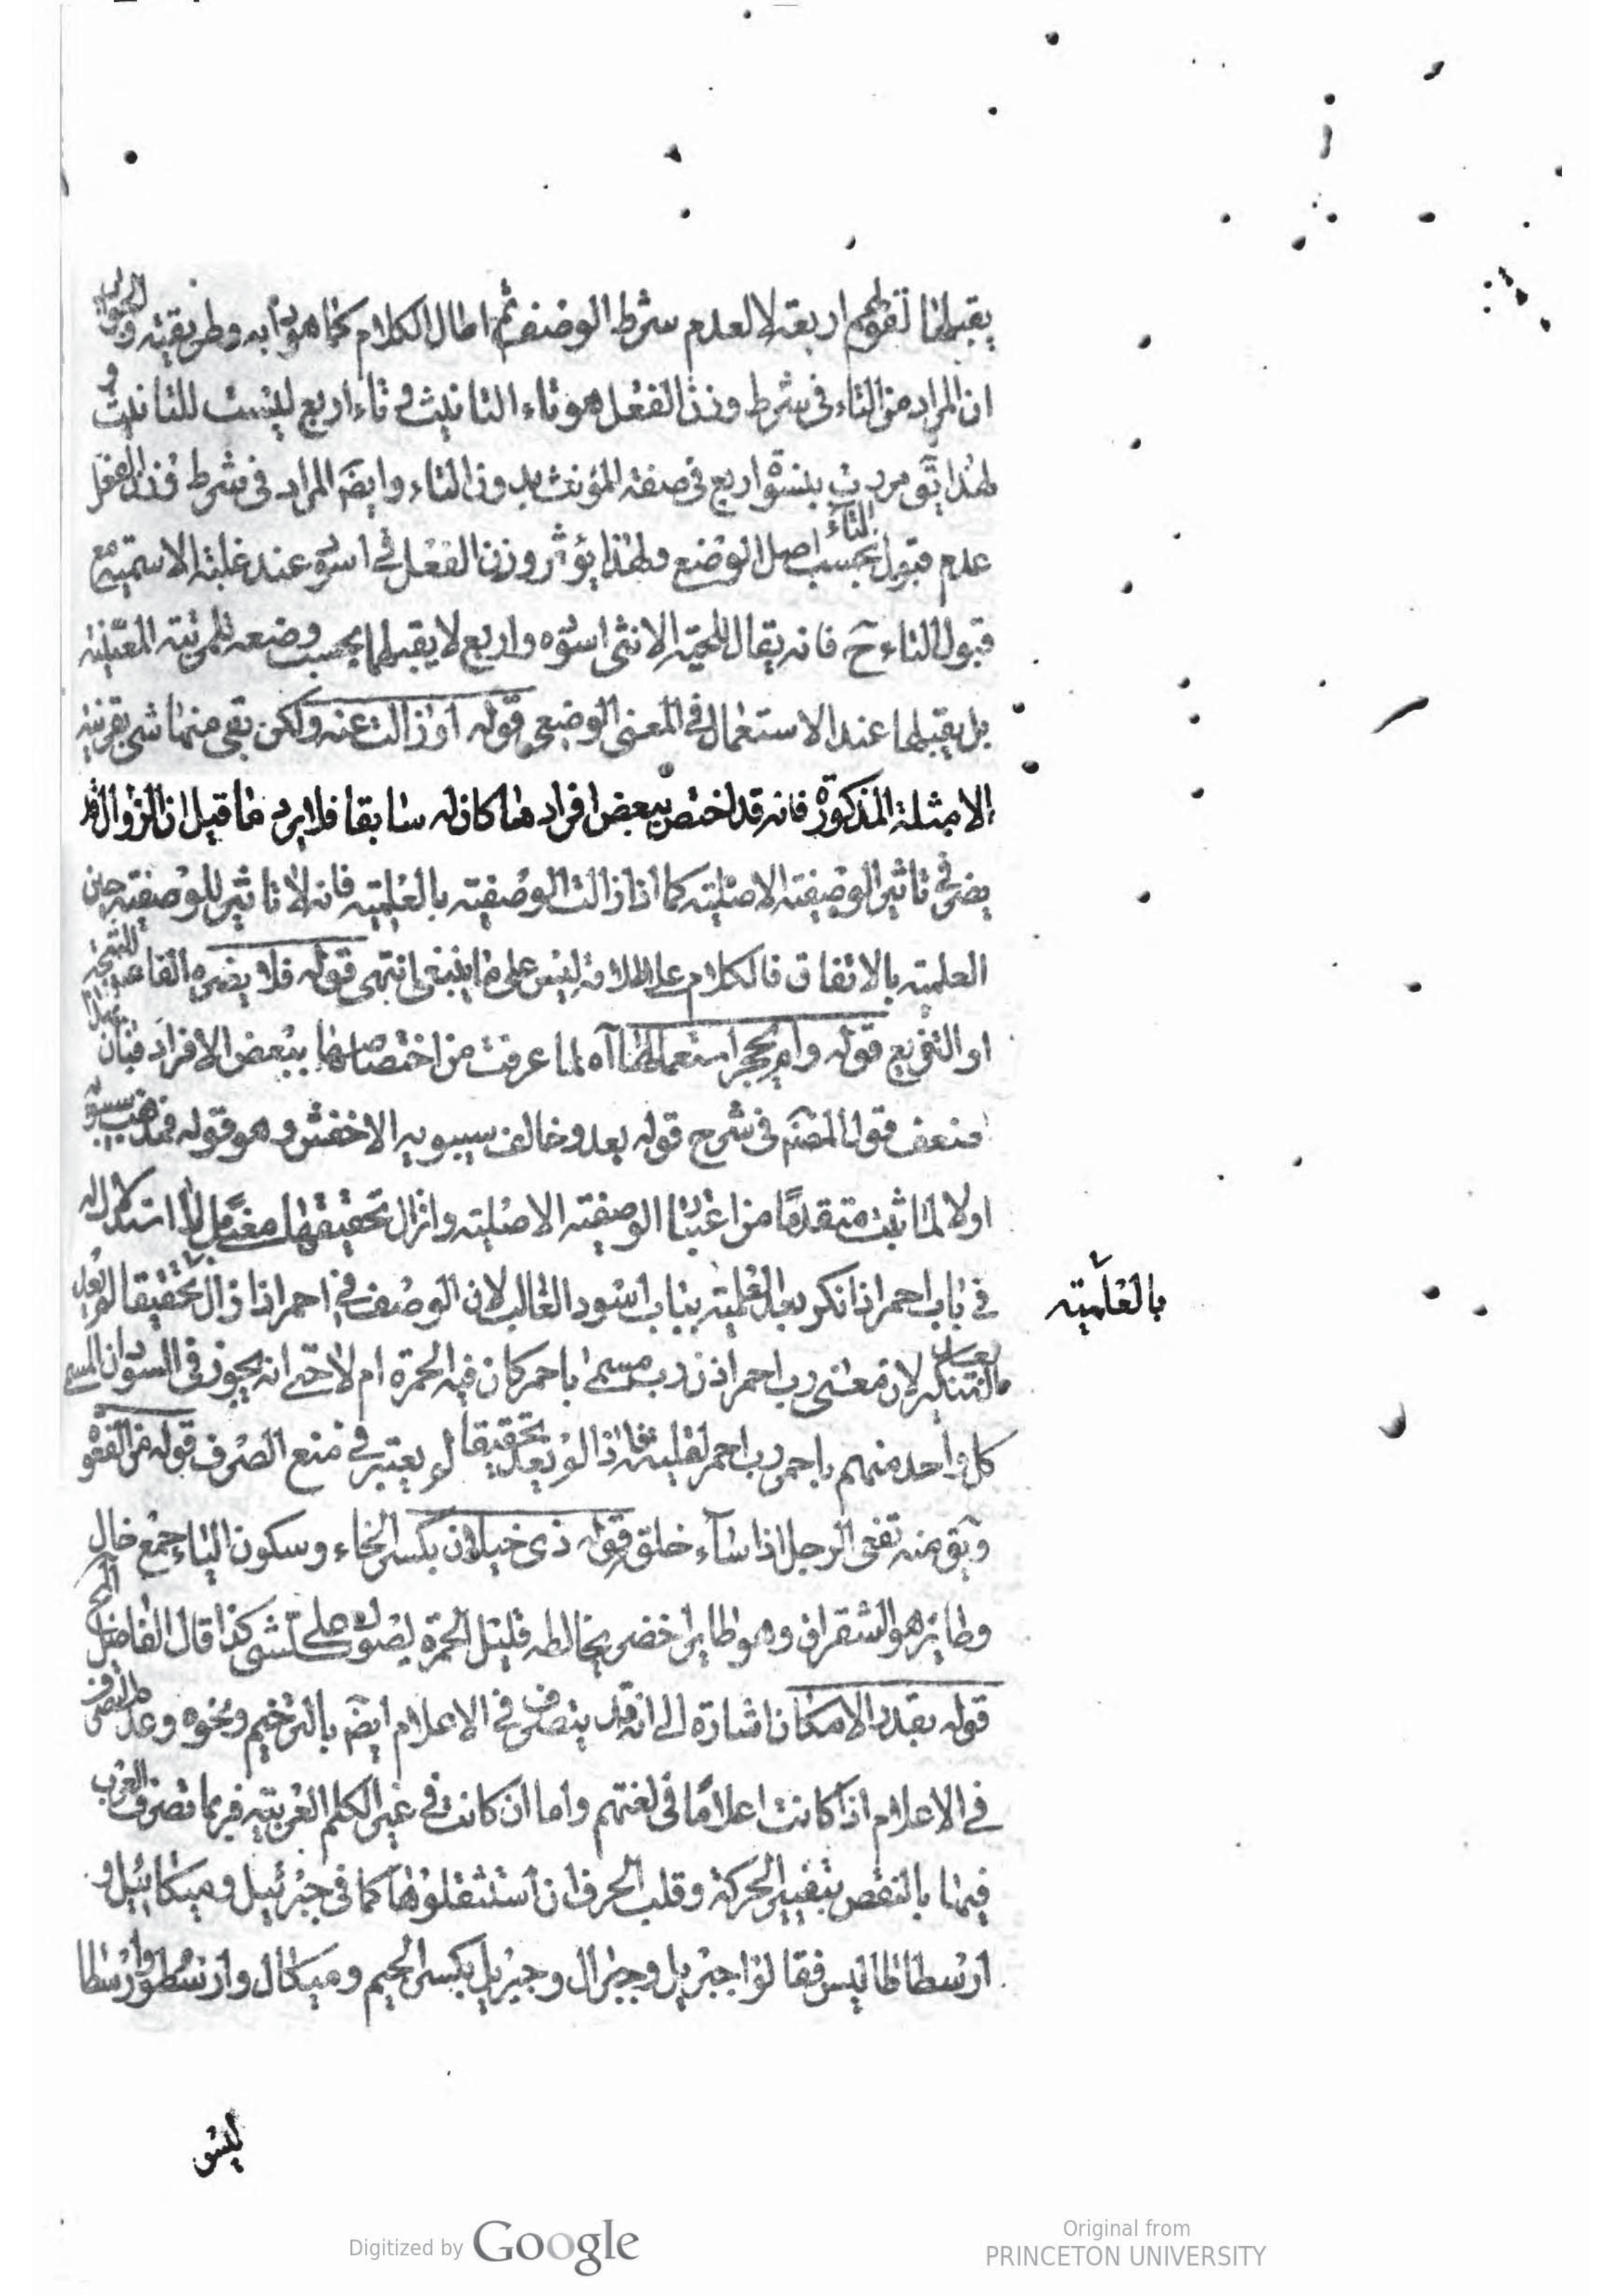 يقبلها لقولهم اربعة لا لعدم شرط الوصف ثم اطال الكلام كما هو دأبه وطريقته والجواب
ان المراد من التاء في شرط وزن الفعل هو تاء التانيث وتاء اربع ليست للتانيث و
لهذا يق مررت بنسوة اربع في صفة المؤنث بدون التاء وايضَ المراد في شرط وزن الفعل
عدم قبول التاء بحسب اصل الوضع ولهذا يؤثر وزن الفعل في اسود عند غلبة الاسمية مع
قبول التاء ح فانه يقال للحية الانثى اسودة واربع لا يقبلها بحسب وضعه للمرتبة المعينة
بل يقبلها عند الاستعمال في المعنى الوضعي قوله او زالت عنه ولكن بقي منها شئ بقرينة
الامثلة المذكورة فانه قد اختص ببعض افراد ما كان له سابقا فلا يرد ما قيل ان الزوال قد
يضر في تاثير الوصفية الاصلية كما اذا زالت الوصفية بالعلمية فانه لا تاثير للوصفية حين
العلمية بالاتفاق فالكلام على اطلاقه ليس على ما ينبغي انتهى قوله فلا يضره الفاء للنتيجة
او التفريع قوله ولم يهجر استعمالها آه لما عرفت من اختصاصها ببعض الافراد فبان بهذا
ضعف قول المصَ في شرح قوله بعد وخالف سيبويه الاخفش وهو قوله فمذهب سيبويه
اولا لما ثبت متقدما من اعتبار الوصفية الاصلية وان زال تحقيقها معنى
في باب احمر اذا نكر بعد العلمية بباب اسود الغالب لان الوصف في احمر اذا زال تحقيقا بالعلمية لم يعد
بعد التنكير لان معنى رب احمر اذن رب مسمى باحمر كان فيه الحمرة ام لا حتى انه يجوز في السودان المسمى
كل واحد منهم باحمر رب احمر لقيته فاذا لم يعد تحقيقا لم يعتبر في منع الصرف قوله من الفعو
ويق منه تفعى الرجل اذا ساء خلقه قوله ذي خيلان بكسر الخاء وسكون الياء جمع خال
وطاير هو الشقراق وهو طاير اخضر يخالطه قليل الحمرة يصول على كل شئ كذا قال الفاضل المحشي
قوله بقدر الامكان اشارة الى انه قد يتصرف في الاعلام ايضَ بالترخيم ونحوه وعدم التصرف
في الاعلام اذا كانت اعلاما في لغتهم واما ان كانت في غير الكلم العربية فربما تصرف العرب
فيها بالنقص بتغيير الحركة وقلب الحرف ان استثقلوها كما في جبرئيل وميكائيل و
ارسطاطاليس فقالوا جبريل وجبرال وجبريل بكسر الجيم وميكال وارسطو وارسطا
ليس